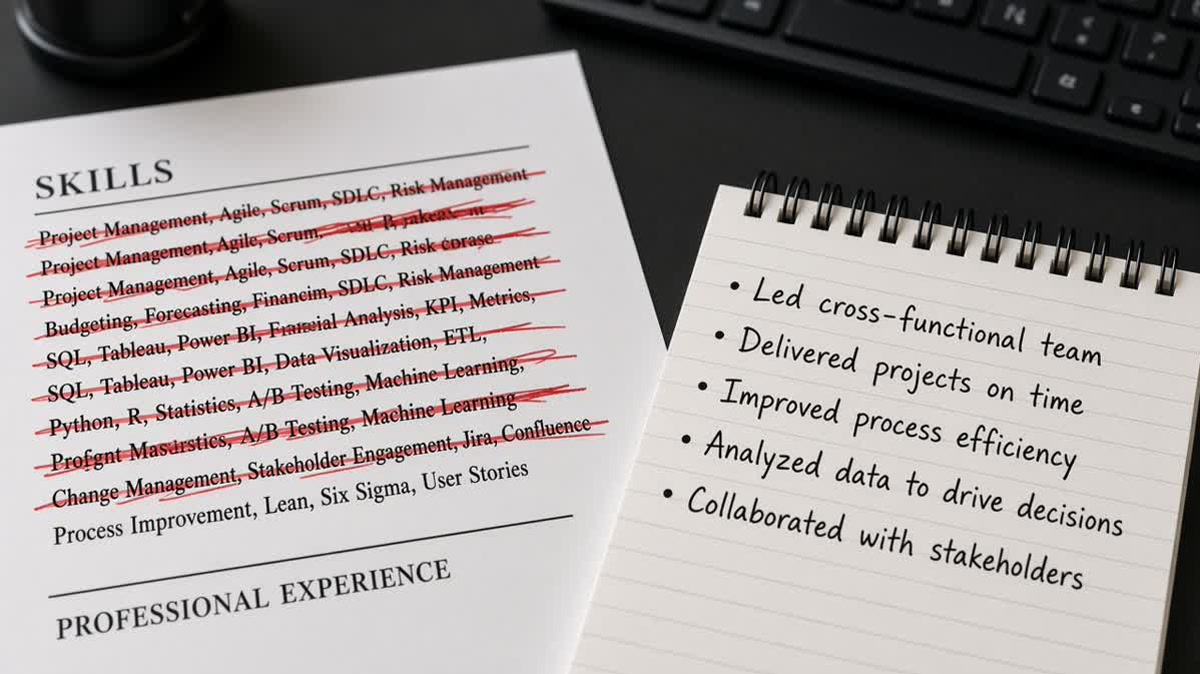 SKILLS
Project Management, Agile, Scrum, SDLC, Risk Management
Project Management, Agile, Scrum,
Project Management, Agile, Scrum, SDLC, Risk
Budgeting, Forecasting, Financim, SDLC, Risk Management
SQL, Tableau, Power BI, Financial Analysis, KPI, Metrics,
SQL, Tableau, Power BI, Data Visualization, ETL,
Python, R, Statistics, A/B Testing, Machine Learning,
A/B Testing, Machine Learning
Change Management, Stakeholder Engagement, Jira, Confluence
Process Improvement, Lean, Six Sigma, User Stories
PROFESSIONAL EXPERIENCE
• Led cross-functional team
• Delivered projects on time
• Improved process efficiency
• Analyzed data to drive decisions
• Collaborated with stakeholders